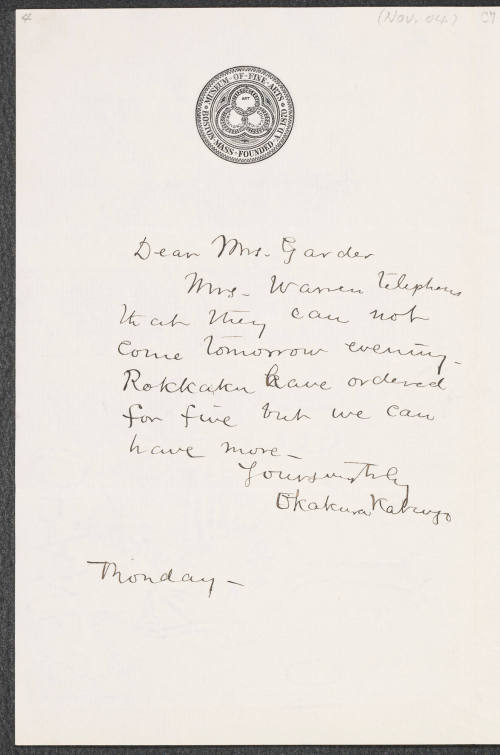 4
(Nov. 04)
MUSEUM·OF·FINE·ARTS
BOSTON·MASS·FOUNDED A.D. 1870
ART
Dear Mrs. Garder
Mrs- Warren telephons
that they can not
come tomorrow evening-
Rokkaku have ordered
for five but we can
have more-
Yours
Okakura Kakuzo
Monday-